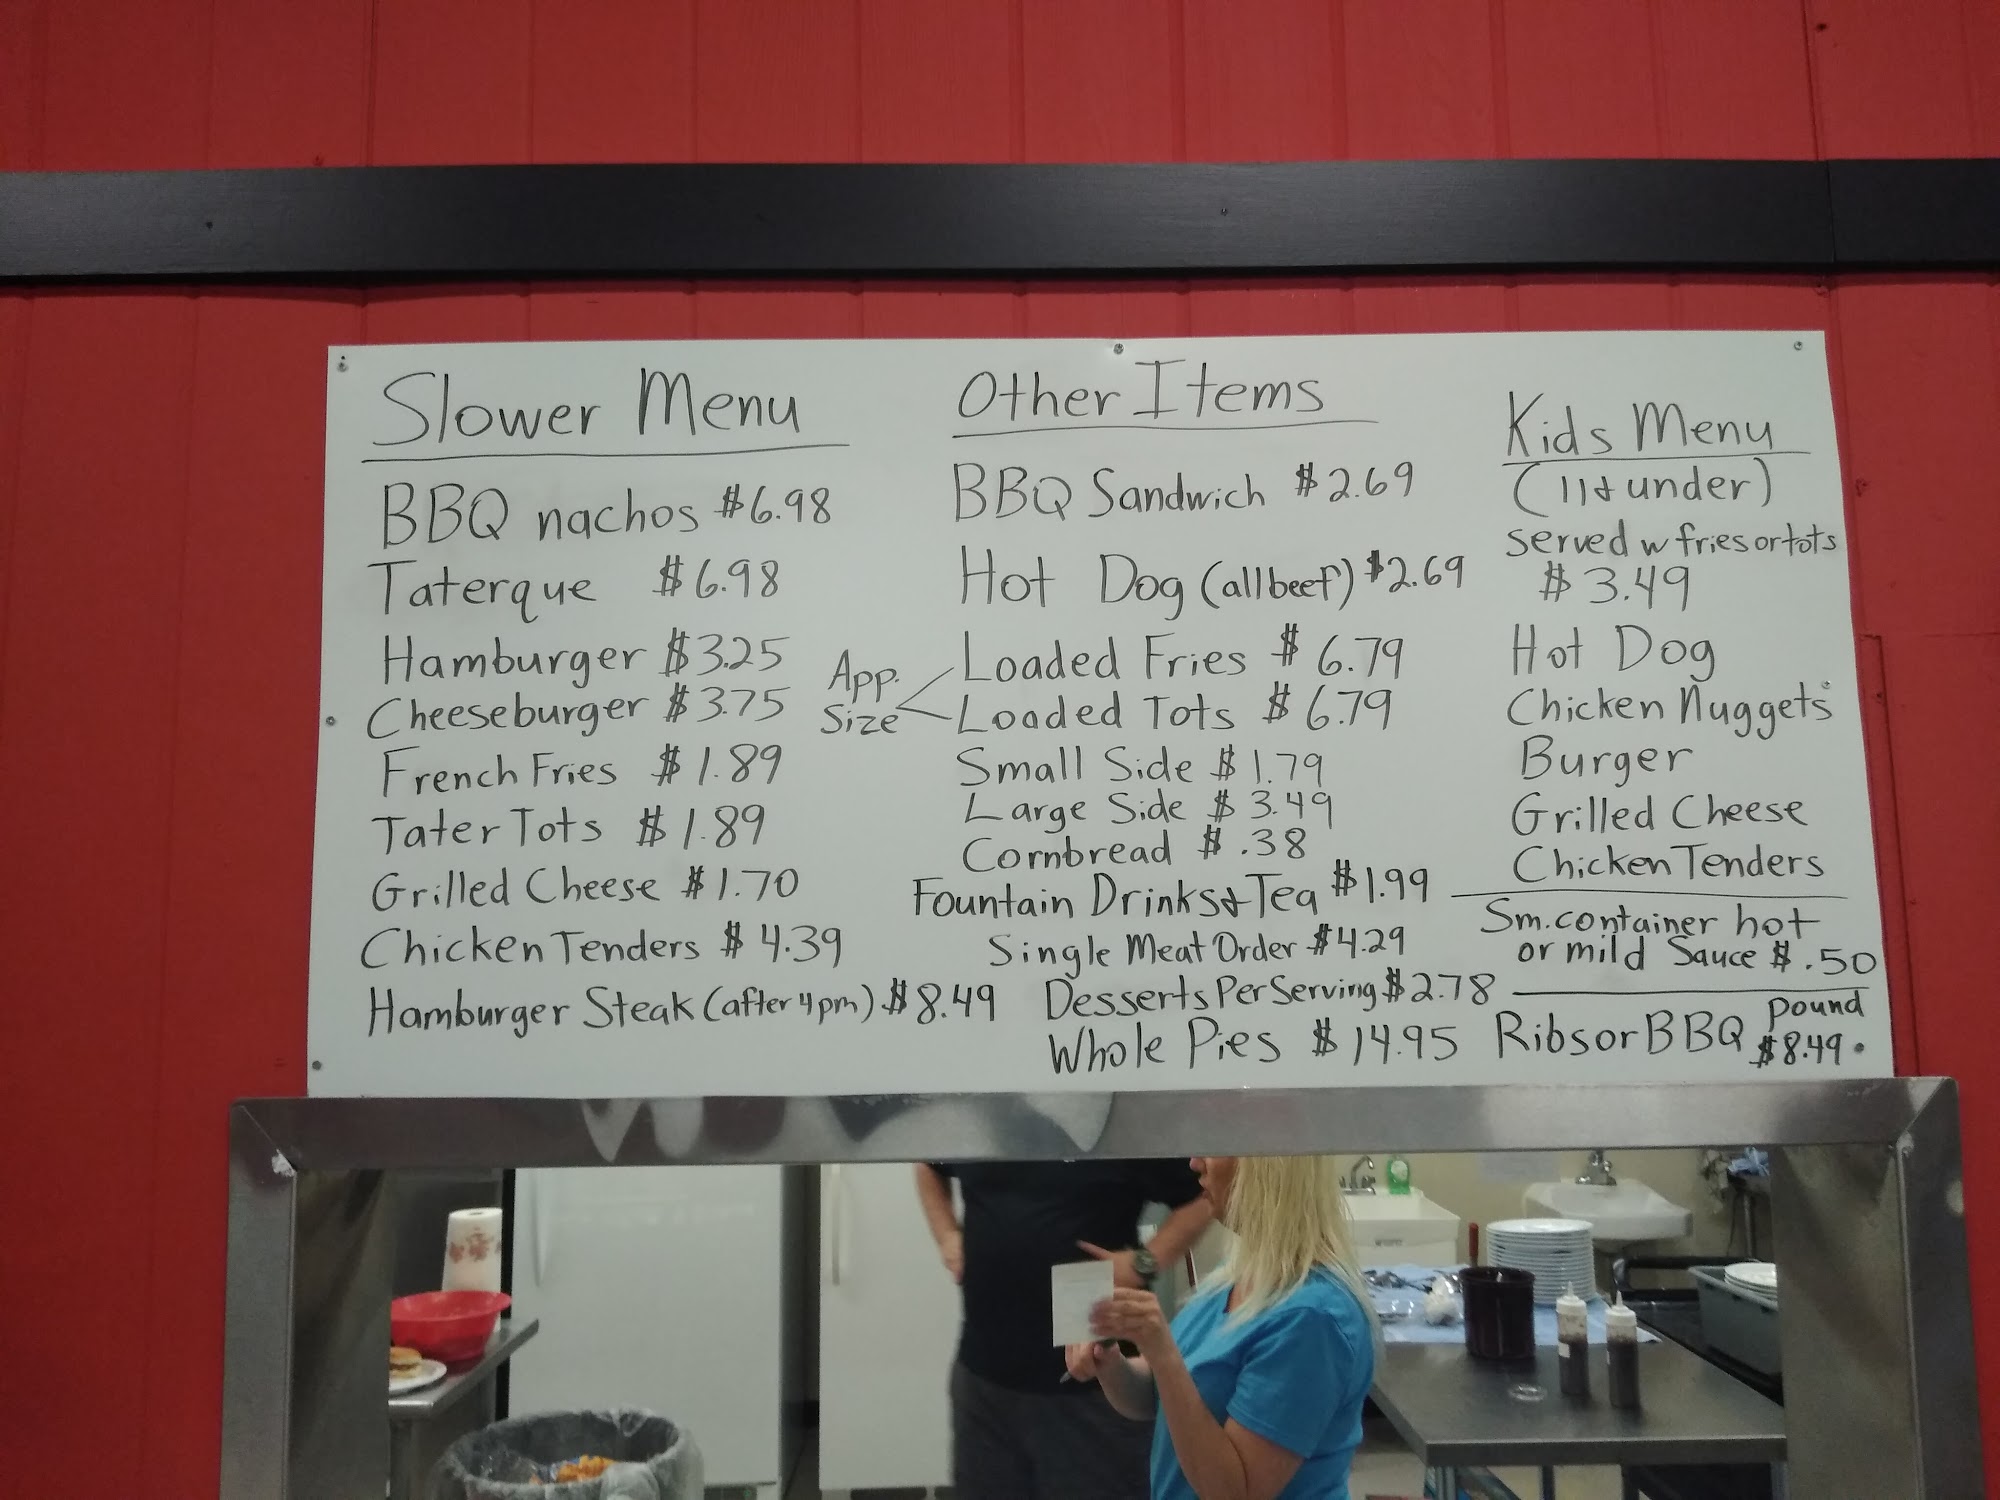 Slower Menu
BBQ nachos $6.98
Taterque $6.98
Hamburger $3.25
Cheeseburger $3.75
French Fries $1.89
Tater Tots $1.89
Grilled Cheese $1.70
Chicken Tenders $4.39
Hamburger Steak (after 4pm) $8.49
Other Items
BBQ Sandwich $2.69
Hot Dog (all beef) $2.69
App.
Size
Loaded Fries $6.79
Loaded Tots $6.79
Small Side $1.79
Large Side $3.49
Cornbread $.38
Fountain Drinks & Tea $1.99
Single Meat Order $4.29
Desserts Per Serving $2.78
Whole Pies $14.95
Kids Menu
(11 & under)
served w fries or tots
$3.49
Hot Dog
Chicken Nuggets
Burger
Grilled Cheese
Chicken Tenders
Sm. container hot
or mild Sauce $.50
Ribs or BBQ pound
$8.49